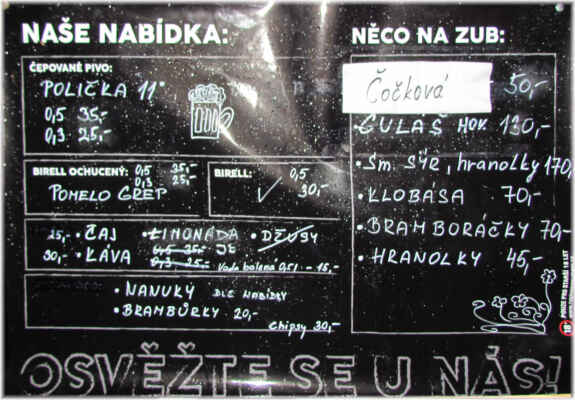 NAŠE NABÍDKA:
ČEPOVANÉ PIVO:
POLIČKA 11°
0,5 35,-
0,3 25,-
BIRELL OCHUCENÝ: 0,5 35,-
0,3 25,-
POMELO GREP
BIRELL: 0,5
30,-
25,- • ČAJ
30,- • KÁVA
LIMONÁDA
0,5 35,-
0,3 25,-
• DŽUSY
Voda balená 0,5l - 15,-
• NANUKY DLE NABÍDKY
• BRAMBŮRKY 20,-
Chipsy 30,-
NĚCO NA ZUB:
Čočková 50,-
• GULÁŠ HOV. 130,-
• Sm. SÝR, hranolky 170,-
• KLOBÁSA 70,-
• BRAMBORÁČKY 70,-
• HRANOLKY 45,-
POUZE PRO STARŠÍ 18 LET
18
OSVĚŽTE SE U NÁS!